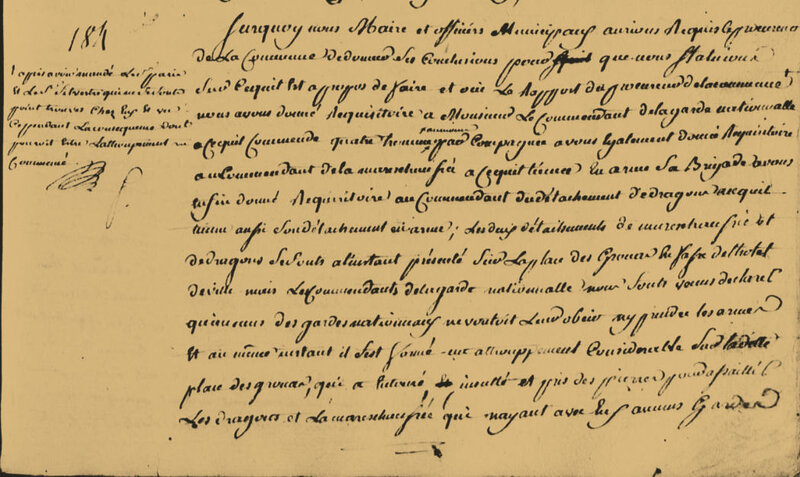 184
apres avoir mandé Les
et Les Silvestre qui ne se sont
point trouvés Chez Eux et vu
Cependant
pouroit Etre L'attroupement
Commencé
Surquoy nous Maire et officiers Municipaux aurions Requis Le procureur
de La Commune de donner Ses Conclusions pour que nous Statuions
Sur Ce qu'il Est apropos de faire et oüi Le Rapport du procureur de la commune
nous avons donné Requisitoire a Monsieur Le Commandant de la garde nationnalle
a Ce quil Commende quatre hommes par Compagnie avons Egalement donné Requisitoire
au Commendant de la marechaussée a Ce quil tienne En arme Sa Brigade avons
Enfin donné Requisitoire au Commandant du detachement de dragons a ce quil
tienne aussi Son detachement en arme; Les deux detachements de marechaussée et
de dragons Se Sonts a linstant presenté Sur La place des En face de l'hotel
de ville mais Les Commendants de la garde nationnalle nous Sonts venus declarer
qu'aucuns des gardes nationnaux ne vouloit Leur obeir ny prendre les armes
Et au même instant il S'est formé un attrouppement Considerable Sur ladite
place des qui a Entouré, insulté et pris des pierres pour assaillir
Les dragons et La marechaussée qui nayant avec Eux aucuns Gardes